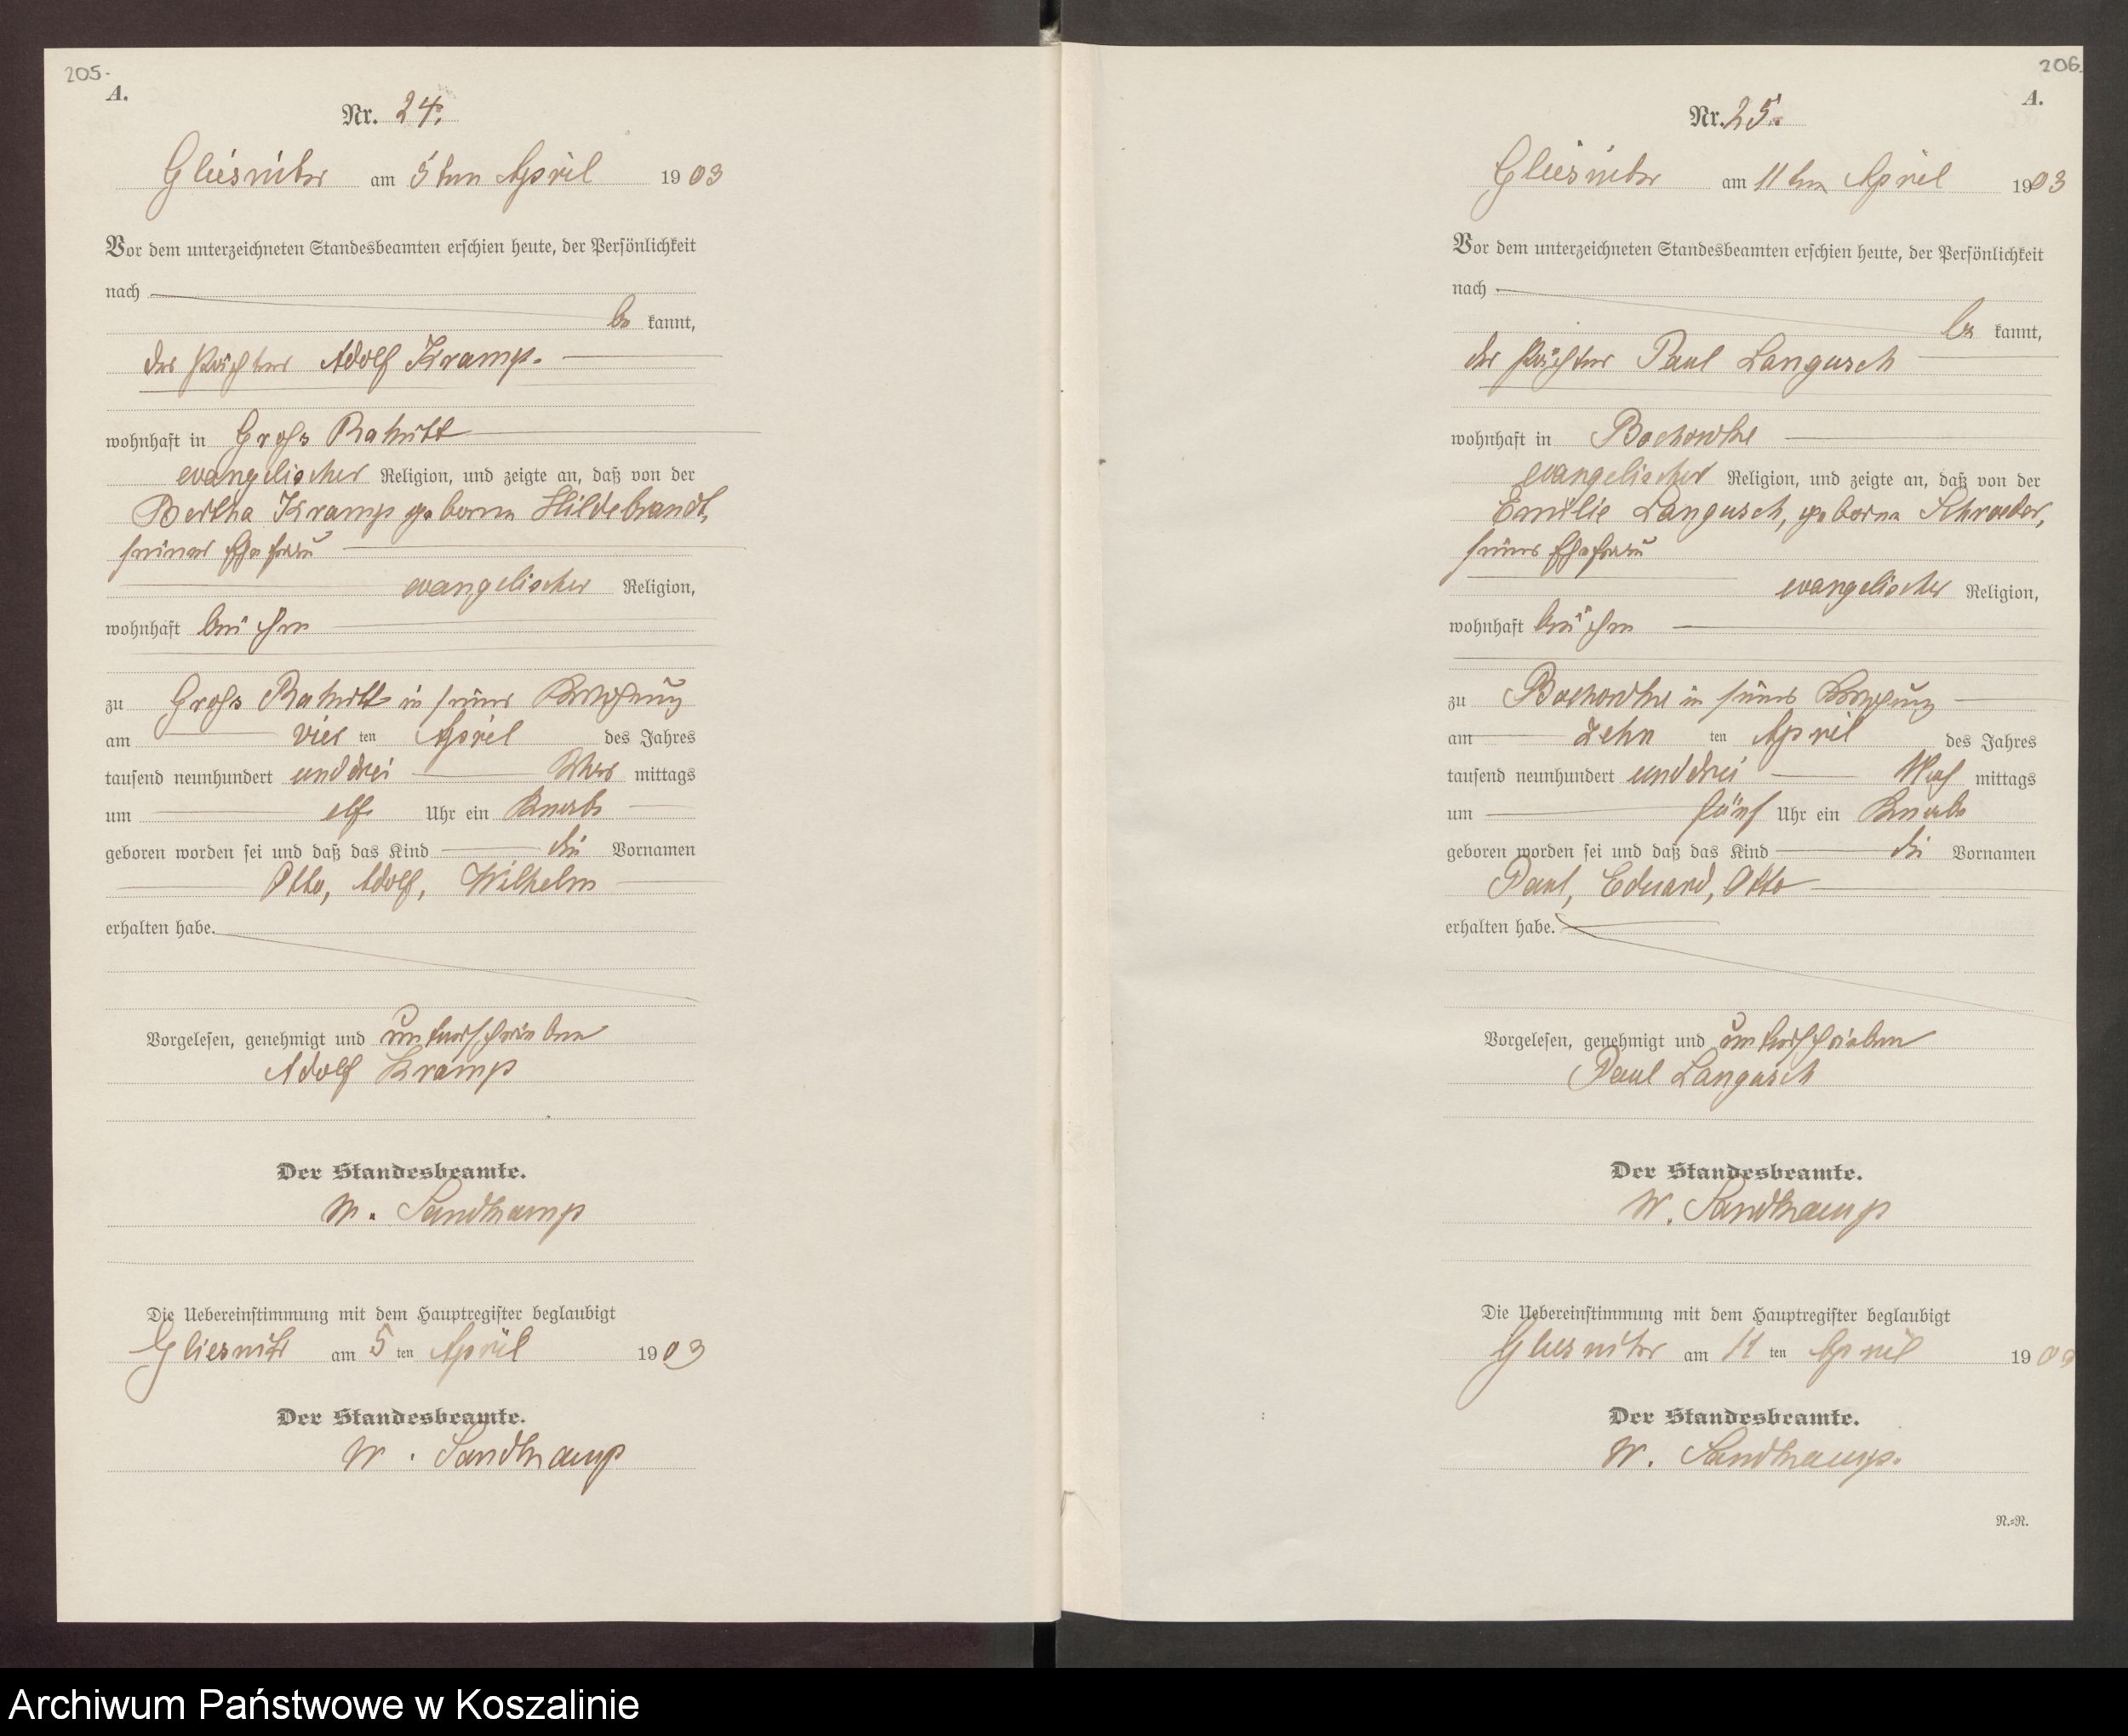 205.
A.
Nr. 24.
Gliesnitz am 5ten April 1903
Vor dem unterzeichneten Standesbeamten erschien heute, der Persönlichkeit
nach
be kannt,
der Pächter Adolf Kramp.
wohnhaft in Gross Rakitt
evangelischer Religion, und zeigte an, daß von der
Bertha Kramp geborne Hildebrandt,
seiner Ehefrau
evangelischer Religion,
wohnhaft bei ihm
zu Gross Rakitt in seiner Wohnung
am vier ten April des Jahres
tausend neunhundert und drei Vor mittags
um elf Uhr ein Knabe
geboren worden sei und daß das Kind die Vornamen
Otto, Adolf, Wilhelm
erhalten habe.
Vorgelesen, genehmigt und unterschrieben
Adolf Kramp
Der Standesbeamte.
W. Sandkamp
Die Uebereinstimmung mit dem Hauptregister beglaubigt
Gliesnitz am 5 ten April 1903
Der Standesbeamte.
W. Sandkamp
206.
A.
Nr. 25.
Gliesnitz am 11ten April 1903
Vor dem unterzeichneten Standesbeamten erschien heute, der Persönlichkeit
nach
be kannt,
der Pächter Paul Langusch
wohnhaft in Bochowke
evangelischer Religion, und zeigte an, daß von der
Emilie Langusch, geborne Schroeder,
seiner Ehefrau
evangelischer Religion,
wohnhaft bei ihm
zu Bochowke in seiner Wohnung
am zehn ten April des Jahres
tausend neunhundert und drei Nach mittags
um fünf Uhr ein Knabe
geboren worden sei und daß das Kind die Vornamen
Paul, Eduard, Otto
erhalten habe.
Vorgelesen, genehmigt und unterschrieben
Paul Langusch
Der Standesbeamte.
W. Sandkamp
Die Uebereinstimmung mit dem Hauptregister beglaubigt
Gliesnitz am 11 ten April 1903
Der Standesbeamte.
W. Sandkamp.
N.=R.
Archiwum Państwowe w Koszalinie